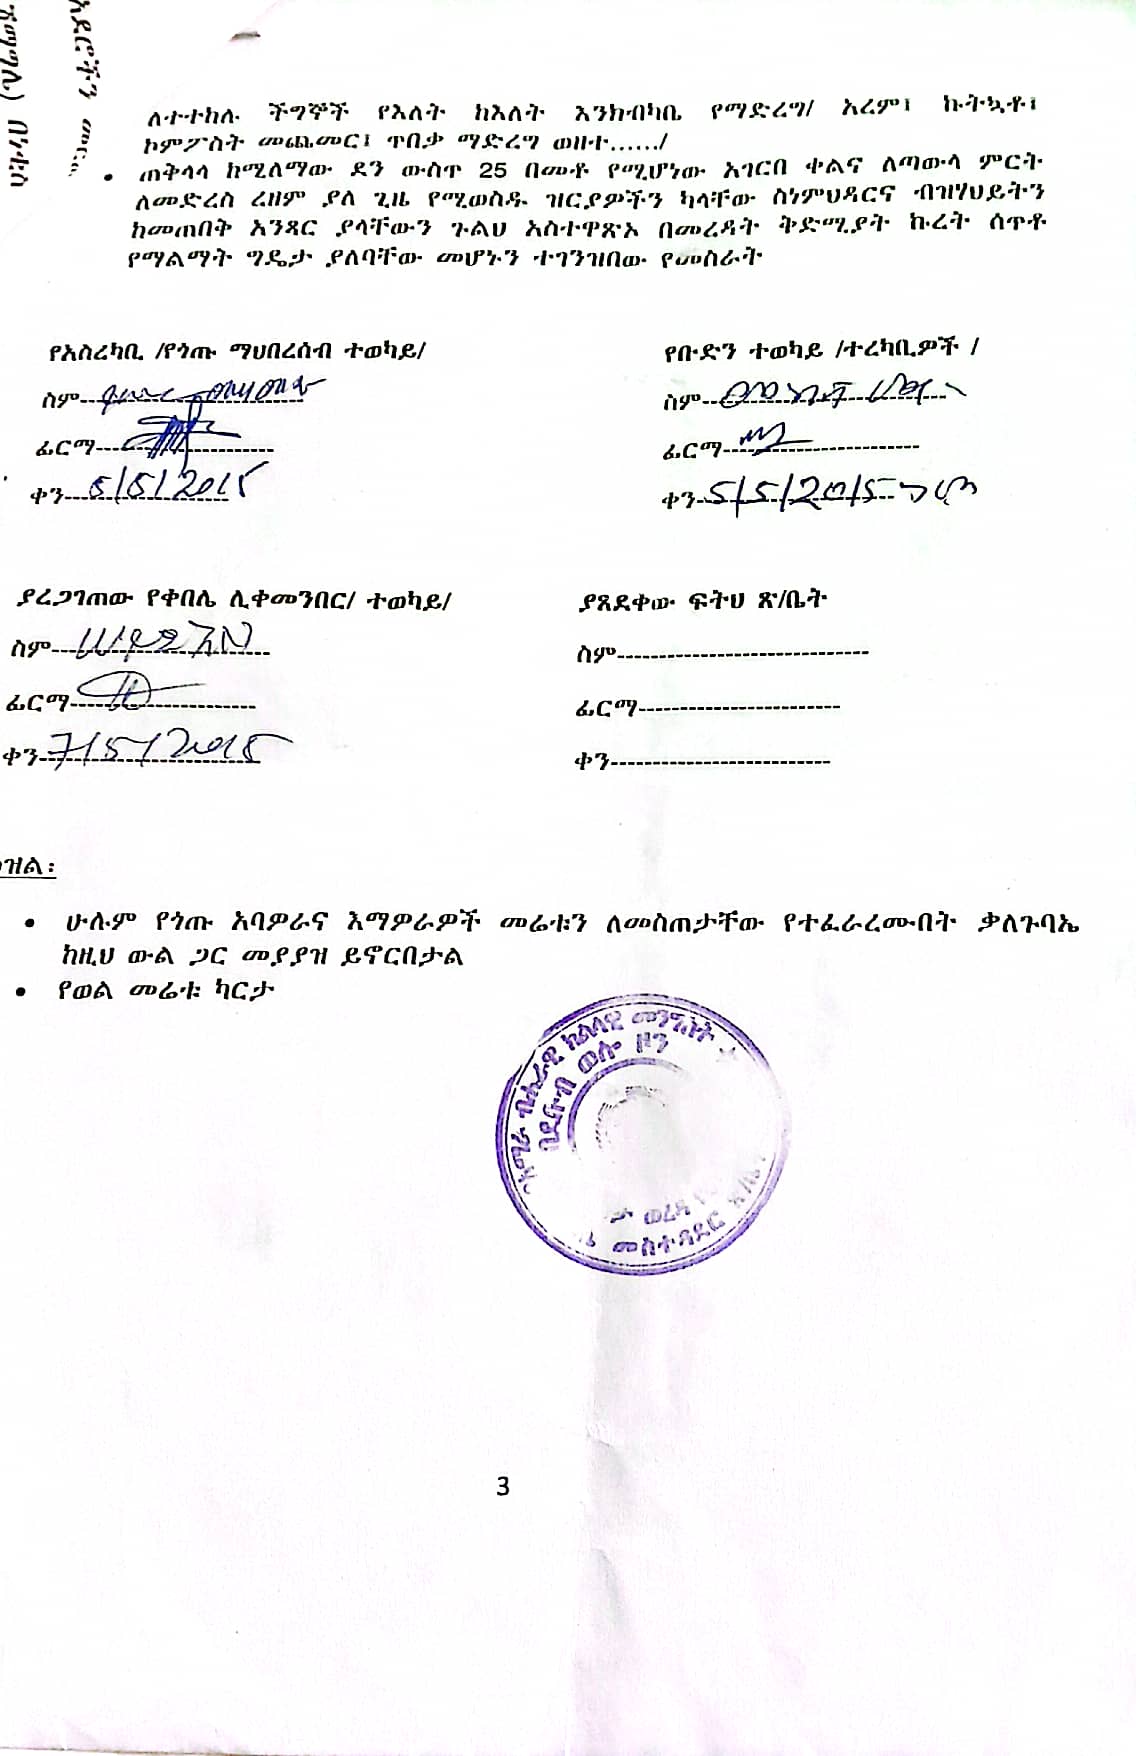 ለተተከሉ ችግኞች የእለት ከእለት እንክብካቤ የማድረግ/ አረም፣ ኩትኳቶ፣
ኮምፖስት መጨመር፣ ጥበቃ ማድረግ ወዘተ....../
• ጠቅላላ ከሚለማው ደን ውስጥ 25 በመቶ የሚሆነው አገርበ ቀልና ለጣውላ ምርት
ለመድረስ ረዘም ያለ ጊዜ የሚወስዱ ዝርያዎችን ካላቸው ስነምህዳርና ብዝሃህይትን
ከመጠበቅ አንጻር ያላቸውን ጉልህ አስተዋጽኦ በመረዳት ቅድሚያት ኩረት ሰጥቶ
የማልማት ግዴታ ያለባቸው መሆኑን ተገንዝበው የመስራት
የአስረካቢ /የጎጡ ማህበረሰብ ተወካይ/
ስም
ፊርማ
ቀን 5/5/2015
የቡድን ተወካይ /ተረካቢዎች /
ስም
ፊርማ
ቀን 5/5/2015
ያረጋገጠው የቀበሌ ሊቀመንበር/ ተወካይ/
ስም
ፊርማ
ቀን 7/5/2015
ያጸደቀው ፍትህ ጽ/ቤት
ስም------------------------------
ፊርማ------------------------
ቀን--------------------------
• ሁሉም የጎጡ አባዎራና እማዎራዎች መሬቱን ለመስጠታቸው የተፈራረሙበት ቃለጉባኤ
ከዚህ ውል ጋር መያያዝ ይኖርበታል
• የወል መሬቱ ካርታ
ብሔራዊ ክልላዊ መንግስት
ወሎ ዞን
ወረዳ
መስተዳደር
3